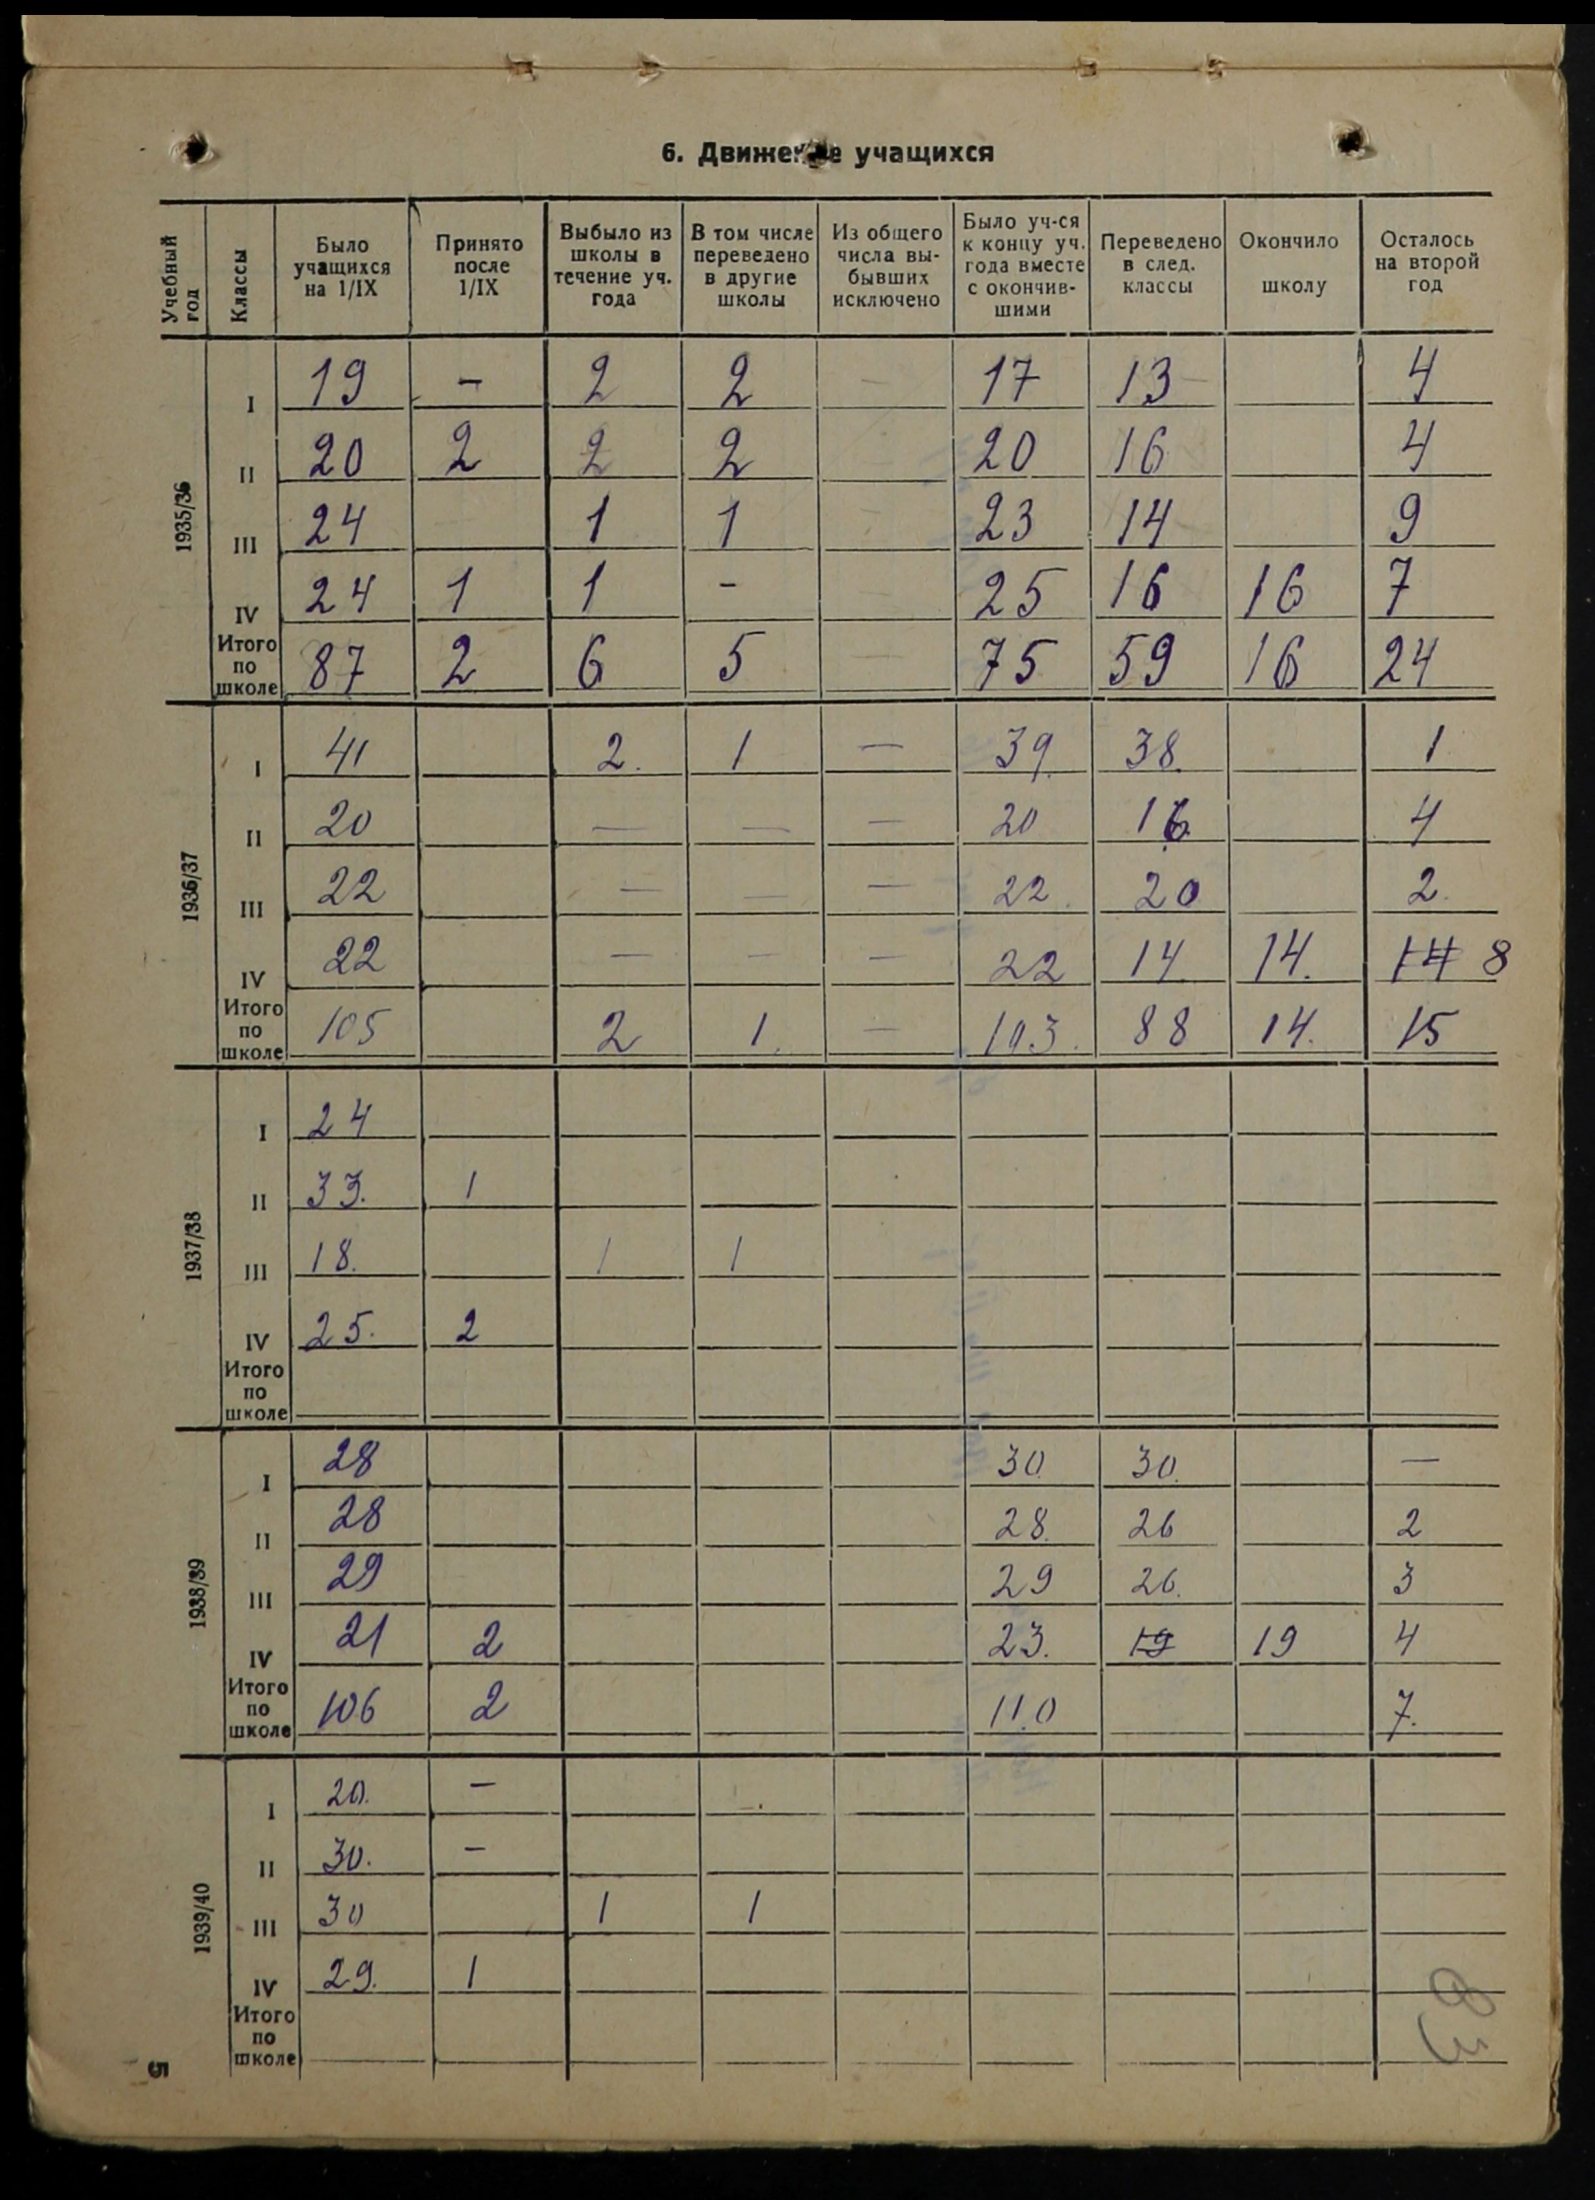 6. Движение учащихся
Учебный год | Классы | Было учащихся на 1/IX | Принято после 1/IX | Выбыло из школы в течение уч. года | В том числе переведено в другие школы | Из общего числа выбывших исключено | Было уч-ся к концу уч. года вместе с окончившими | Переведено в след. классы | Окончило школу | Осталось на второй год
1935/36
I 19 - 2 2 — 17 13 4
II 20 2 2 2 — 20 16 4
III 24 1 1 — 23 14 9
IV 24 1 1 - — 25 16 16 7
Итого по школе 87 2 6 5 — 75 59 16 24
1936/37
I 41 2. 1 — 39. 38. 1
II 20 — — — 20 16. 4
III 22 — — — 22. 20 2.
IV 22 — — — 22 14. 14. 14 8
Итого по школе 105 2 1. — 103. 88 14. 15
1937/38
I 24
II 33. 1
III 18. 1 1
IV 25. 2
Итого по школе
1938/39
I 28 30. 30. —
II 28 28. 26 2
III 29 29 26. 3
IV 21 2 23. 19 19 4
Итого по школе 106 2 110 7.
1939/40
I 20. —
II 30. —
III 30 1 1
IV 29. 1
Итого по школе
5